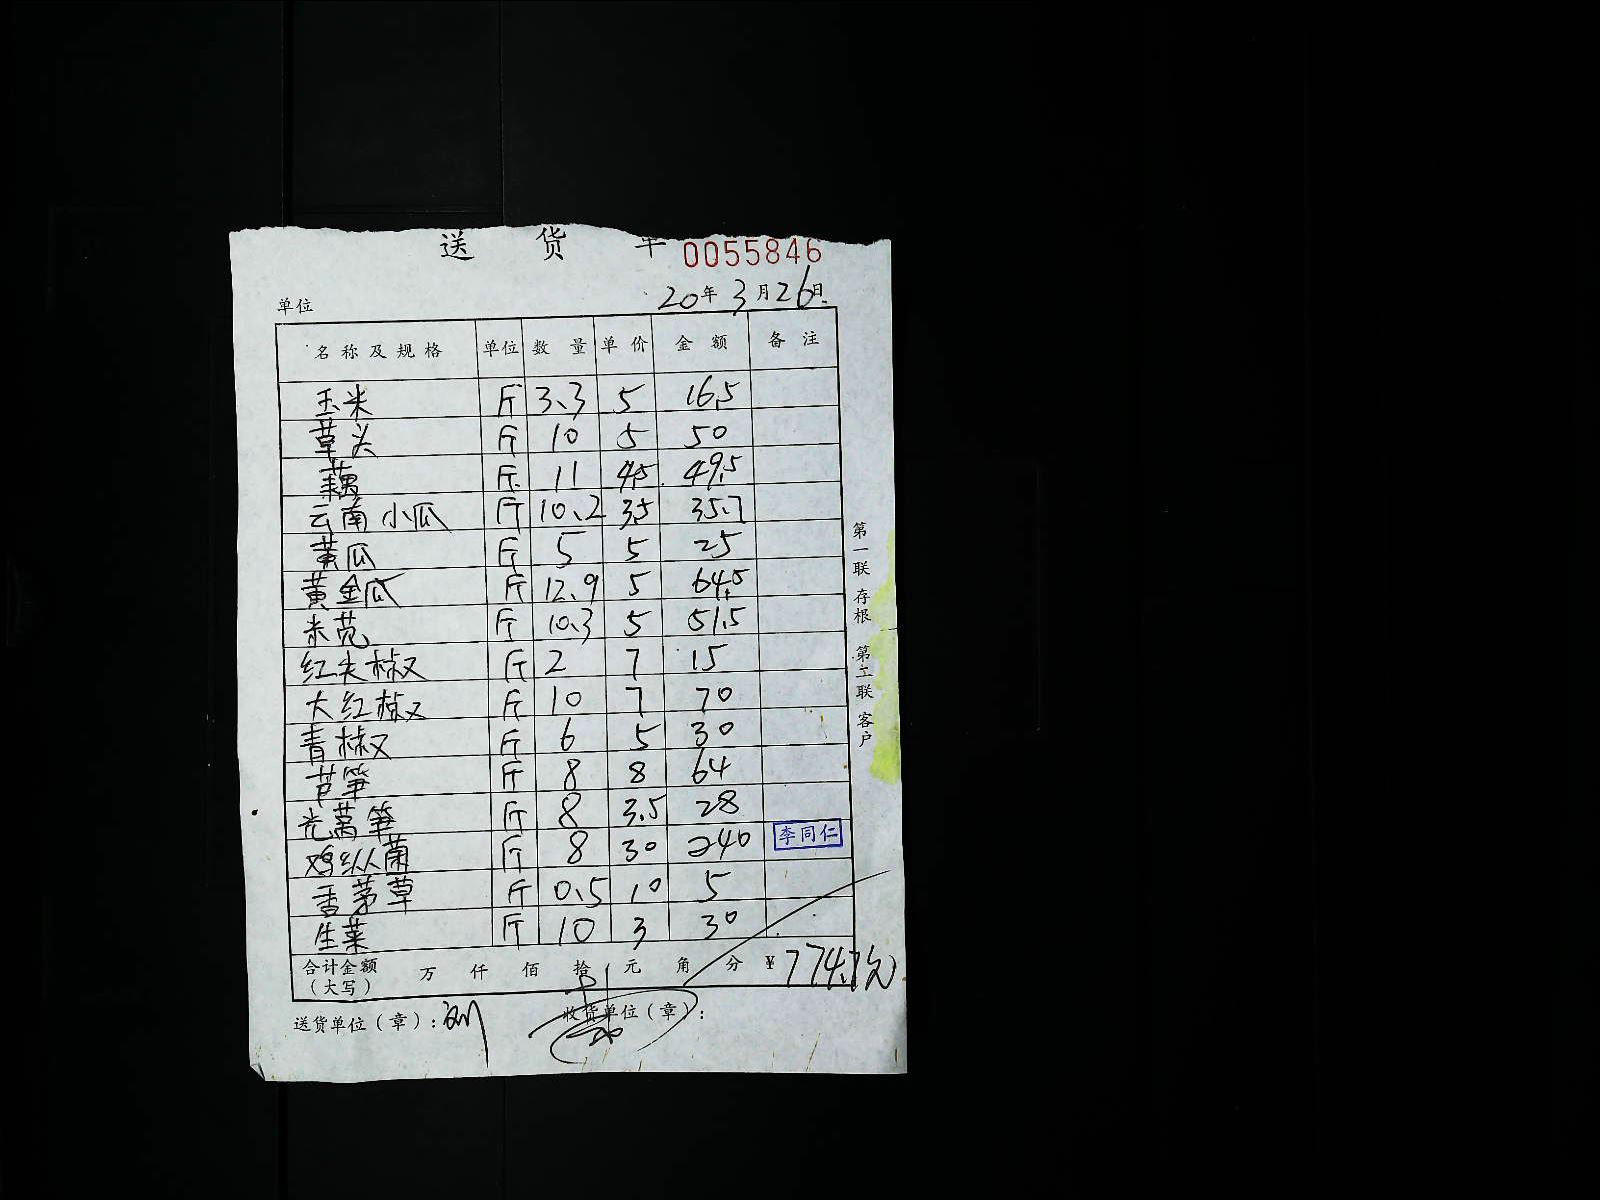 送货单 0055846
单位 20年3月26日
名称及规格 单位 数量 单价 金额 备注
玉米 斤 3.3 5 16.5
草头 斤 10 5 50
藕 斤 11 4.5 49.5
云南小瓜 斤 10.2 3.5 35.7
黄瓜 斤 5 5 25
黄金瓜 斤 12.9 5 64.5
米苋 斤 10.3 5 51.5
红尖椒 斤 2 7 15
大红椒 斤 10 7 70
青椒 斤 6 5 30
芦笋 斤 8 8 64
光莴笋 斤 8 3.5 28
鸡纵菌 斤 8 30 240 李同仁
香茅草 斤 0.5 10 5
生菜 斤 10 3 30
合计金额（大写） 万 仟 佰 拾 元 角 分 ¥774.7元
送货单位（章）： 收货单位（章）：
第一联 存根 第二联 客户